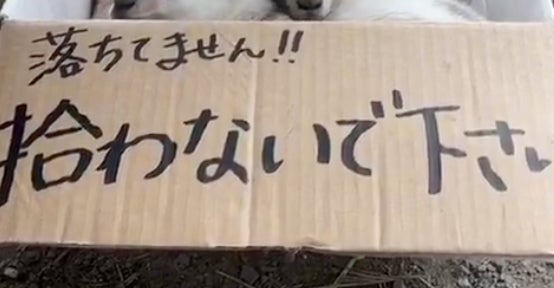 落ちてません!!
拾わないで下さい